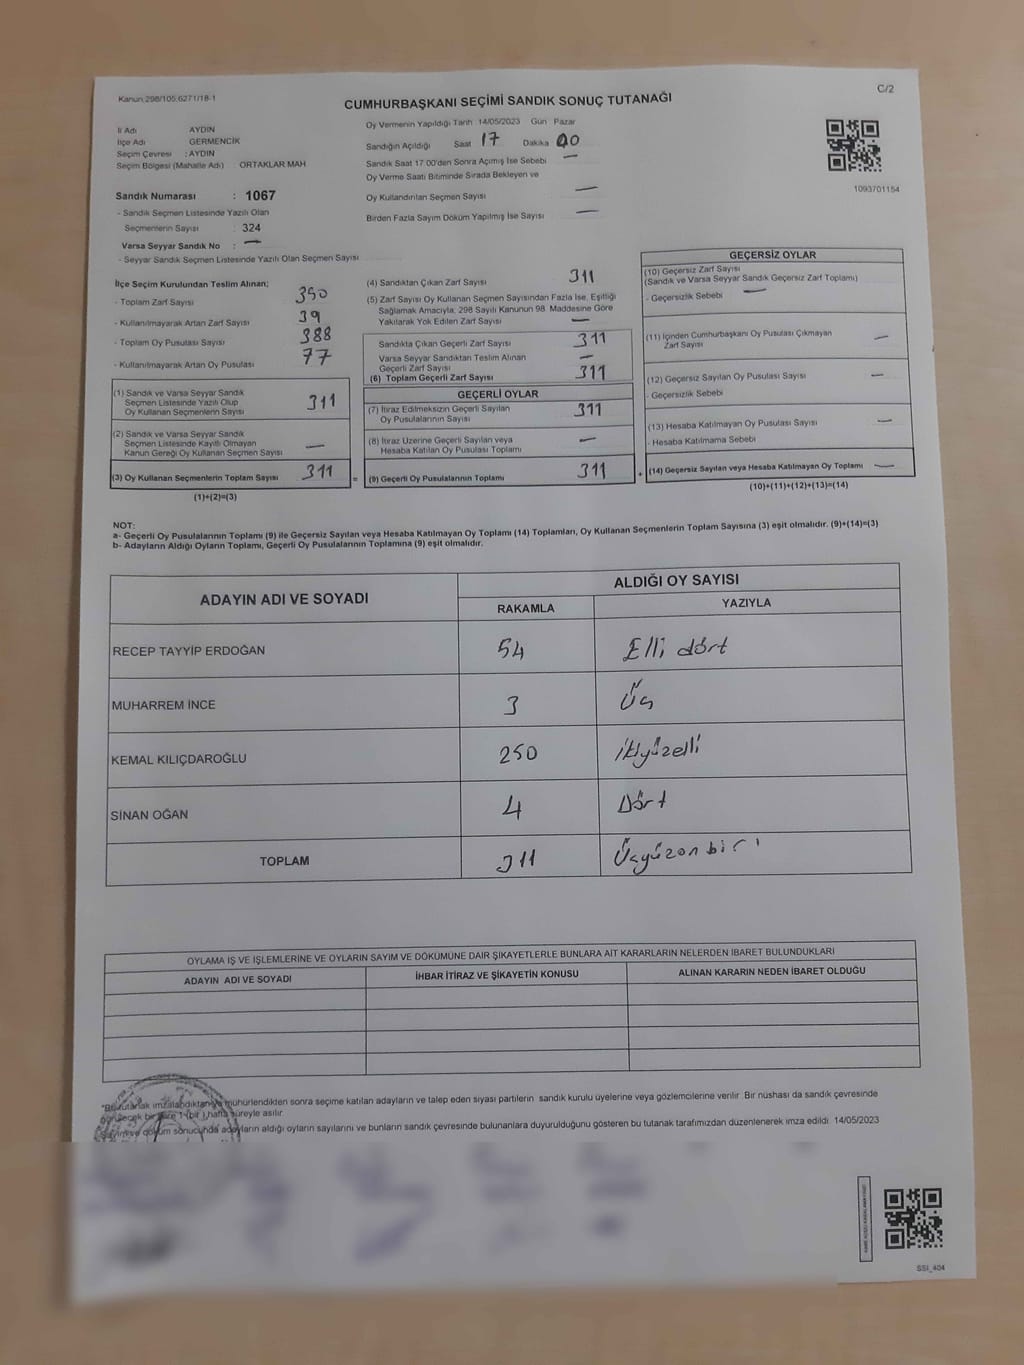 Kanun:298/105;6271/18-1
C/2
CUMHURBAŞKANI SEÇİMİ SANDIK SONUÇ TUTANAĞI
İl Adı AYDIN
İlçe Adı GERMENCİK
Seçim Çevresi : AYDIN
Seçim Bölgesi (Mahalle Adı) : ORTAKLAR MAH
Sandık Numarası : 1067
- Sandık Seçmen Listesinde Yazılı Olan
Seçmenlerin Sayısı : 324
Varsa Seyyar Sandık No : —
- Seyyar Sandık Seçmen Listesinde Yazılı Olan Seçmen Sayısı
Oy Vermenin Yapıldığı Tarih 14/05/2023 Gün Pazar
Sandığın Açıldığı Saat 17 Dakika 00
Sandık Saat 17 00'den Sonra Açılmış İse Sebebi —
Oy Verme Saati Bitiminde Sırada Bekleyen ve
Oy Kullandırılan Seçmen Sayısı —
Birden Fazla Sayım Döküm Yapılmış İse Sayısı —
1093701154
İlçe Seçim Kurulundan Teslim Alınan;
- Toplam Zarf Sayısı 350
- Kullanılmayarak Artan Zarf Sayısı 39
- Toplam Oy Pusulası Sayısı 388
- Kullanılmayarak Artan Oy Pusulası 77
(1) Sandık ve Varsa Seyyar Sandık
Seçmen Listesinde Yazılı Olup
Oy Kullanan Seçmenlerin Sayısı 311
(2) Sandık ve Varsa Seyyar Sandık
Seçmen Listesinde Kayıtlı Olmayan
Kanun Gereği Oy Kullanan Seçmen Sayısı —
(3) Oy Kullanan Seçmenlerin Toplam Sayısı 311 =
(1)+(2)=(3)
(4) Sandıktan Çıkan Zarf Sayısı 311
(5) Zarf Sayısı Oy Kullanan Seçmen Sayısından Fazla İse, Eşitliği
Sağlamak Amacıyla, 298 Sayılı Kanunun 98. Maddesine Göre
Yakılarak Yok Edilen Zarf Sayısı —
Sandıkta Çıkan Geçerli Zarf Sayısı 311
Varsa Seyyar Sandıktan Teslim Alınan
Geçerli Zarf Sayısı —
(6) Toplam Geçerli Zarf Sayısı 311
GEÇERLİ OYLAR
(7) İtiraz Edilmeksizin Geçerli Sayılan
Oy Pusulalarının Sayısı 311
(8) İtiraz Üzerine Geçerli Sayılan veya
Hesaba Katılan Oy Pusulası Toplamı —
(9) Geçerli Oy Pusulalarının Toplamı 311 +
GEÇERSİZ OYLAR
(10) Geçersiz Zarf Sayısı
(Sandık ve Varsa Seyyar Sandık Geçersiz Zarf Toplamı)
- Geçersizlik Sebebi —
(11) İçinden Cumhurbaşkanı Oy Pusulası Çıkmayan
Zarf Sayısı —
(12) Geçersiz Sayılan Oy Pusulası Sayısı —
- Geçersizlik Sebebi
(13) Hesaba Katılmayan Oy Pusulası Sayısı —
- Hesaba Katılmama Sebebi
(14) Geçersiz Sayılan veya Hesaba Katılmayan Oy Toplamı —
(10)+(11)+(12)+(13)=(14)
NOT:
a- Geçerli Oy Pusulalarının Toplamı (9) ile Geçersiz Sayılan veya Hesaba Katılmayan Oy Toplamı (14) Toplamları, Oy Kullanan Seçmenlerin Toplam Sayısına (3) eşit olmalıdır. (9)+(14)=(3)
b- Adayların Aldığı Oyların Toplamı, Geçerli Oy Pusulalarının Toplamına (9) eşit olmalıdır.
ADAYIN ADI VE SOYADI
ALDIĞI OY SAYISI
RAKAMLA YAZIYLA
RECEP TAYYİP ERDOĞAN 54 Elli dört
MUHARREM İNCE 3 Üç
KEMAL KILIÇDAROĞLU 250 ikiyüzelli
SİNAN OĞAN 4 Dört
TOPLAM 311 Üçyüzonbir
OYLAMA İŞ VE İŞLEMLERİNE VE OYLARIN SAYIM VE DÖKÜMÜNE DAİR ŞİKAYETLERLE BUNLARA AİT KARARLARIN NELERDEN İBARET BULUNDUKLARI
ADAYIN ADI VE SOYADI İHBAR İTİRAZ VE ŞİKAYETİN KONUSU ALINAN KARARIN NEDEN İBARET OLDUĞU
*Bu tutanak imzalandıktan ve mühürlendikten sonra seçime katılan adayların ve talep eden siyasi partilerin sandık kurulu üyelerine veya gözlemcilerine verilir. Bir nüshası da sandık çevresinde
görülecek bir yere 1 (bir) hafta süreyle asılır.
Sayım ve döküm sonucunda adayların aldığı oyların sayılarını ve bunların sandık çevresinde bulunanlara duyurulduğunu gösteren bu tutanak tarafımızdan düzenlenerek imza edildi. 14/05/2023
SSI_404